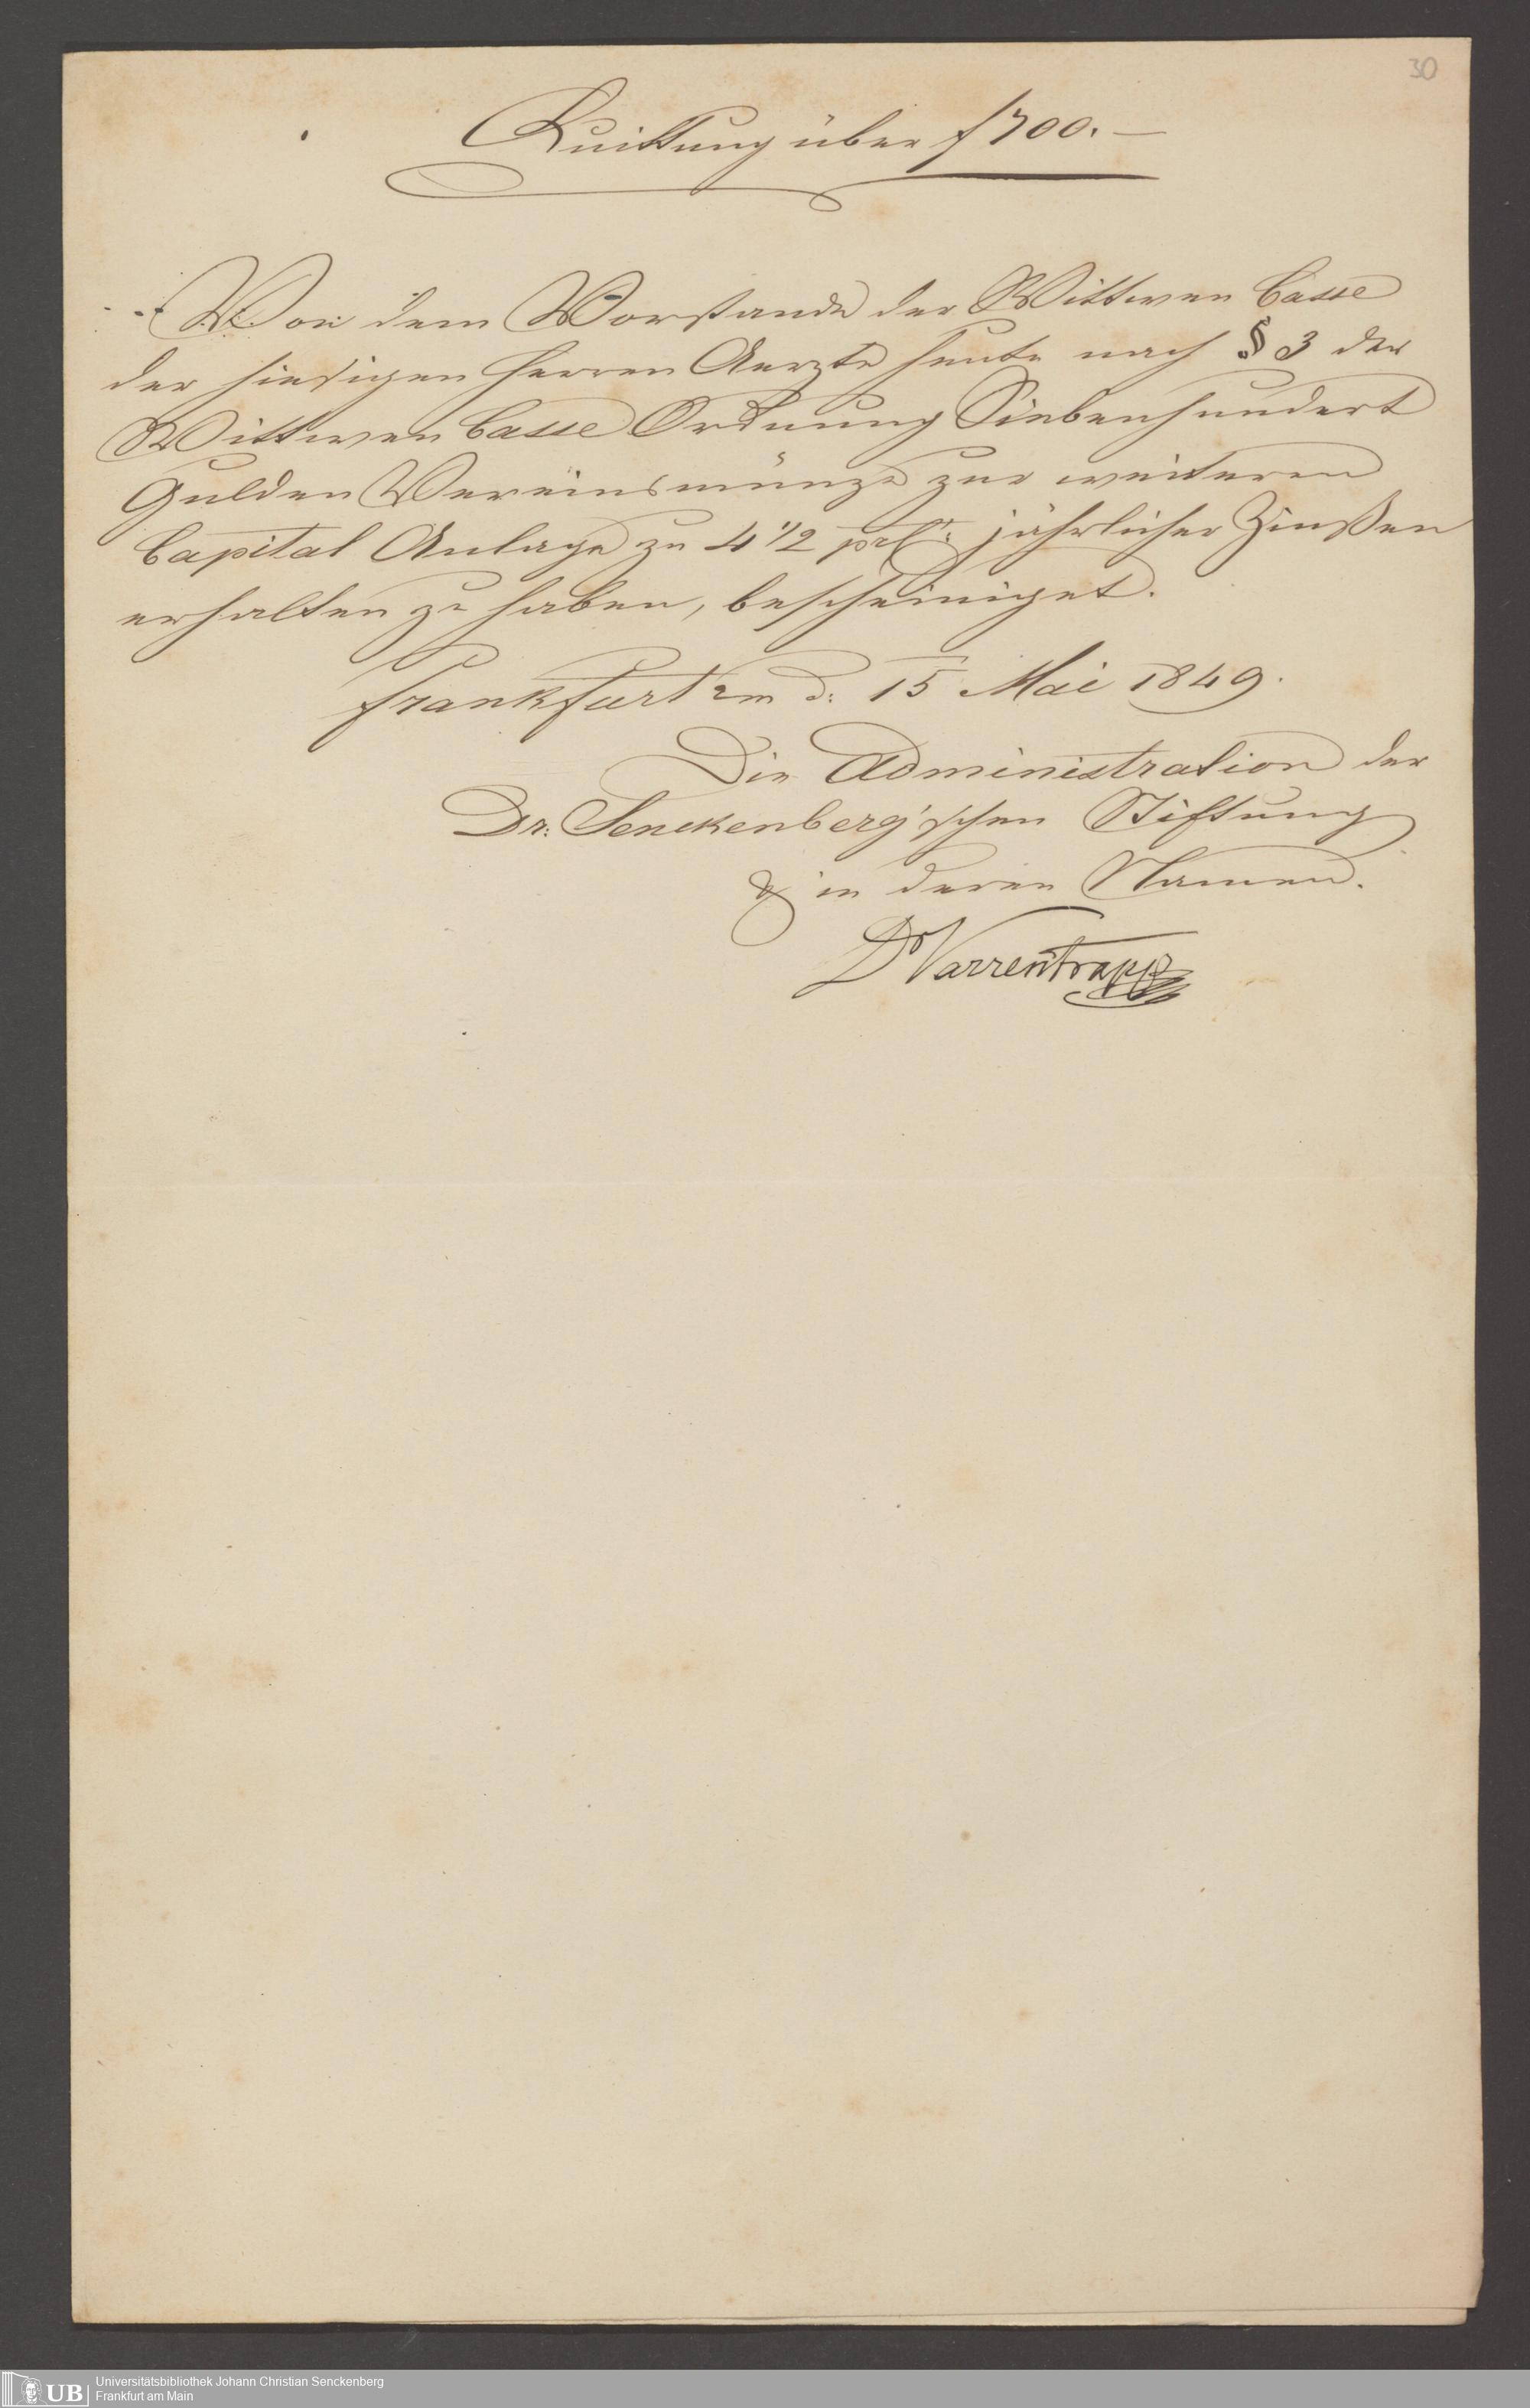 30
Quittung über f 700.—
Von dem Vorstande der Wittwen Casse
der hiesigen Herren Aerzte heute nach § 3 der
Wittwen Casse Ordnung Siebenhundert
Gulden Vereinsmünze zur weiteren
Capital Anlage zu 4 1/2 prCt: jährlicher Zinßen
erhalten zu haben, bescheiniget.
Frankfurt am d: 15 Mai 1849.
Die Administration der
Dr: Senckenberg'schen Stiftung
& in deren Namen.
Dr Varrentrapp
UB
Universitätsbibliothek Johann Christian Senckenberg
Frankfurt am Main